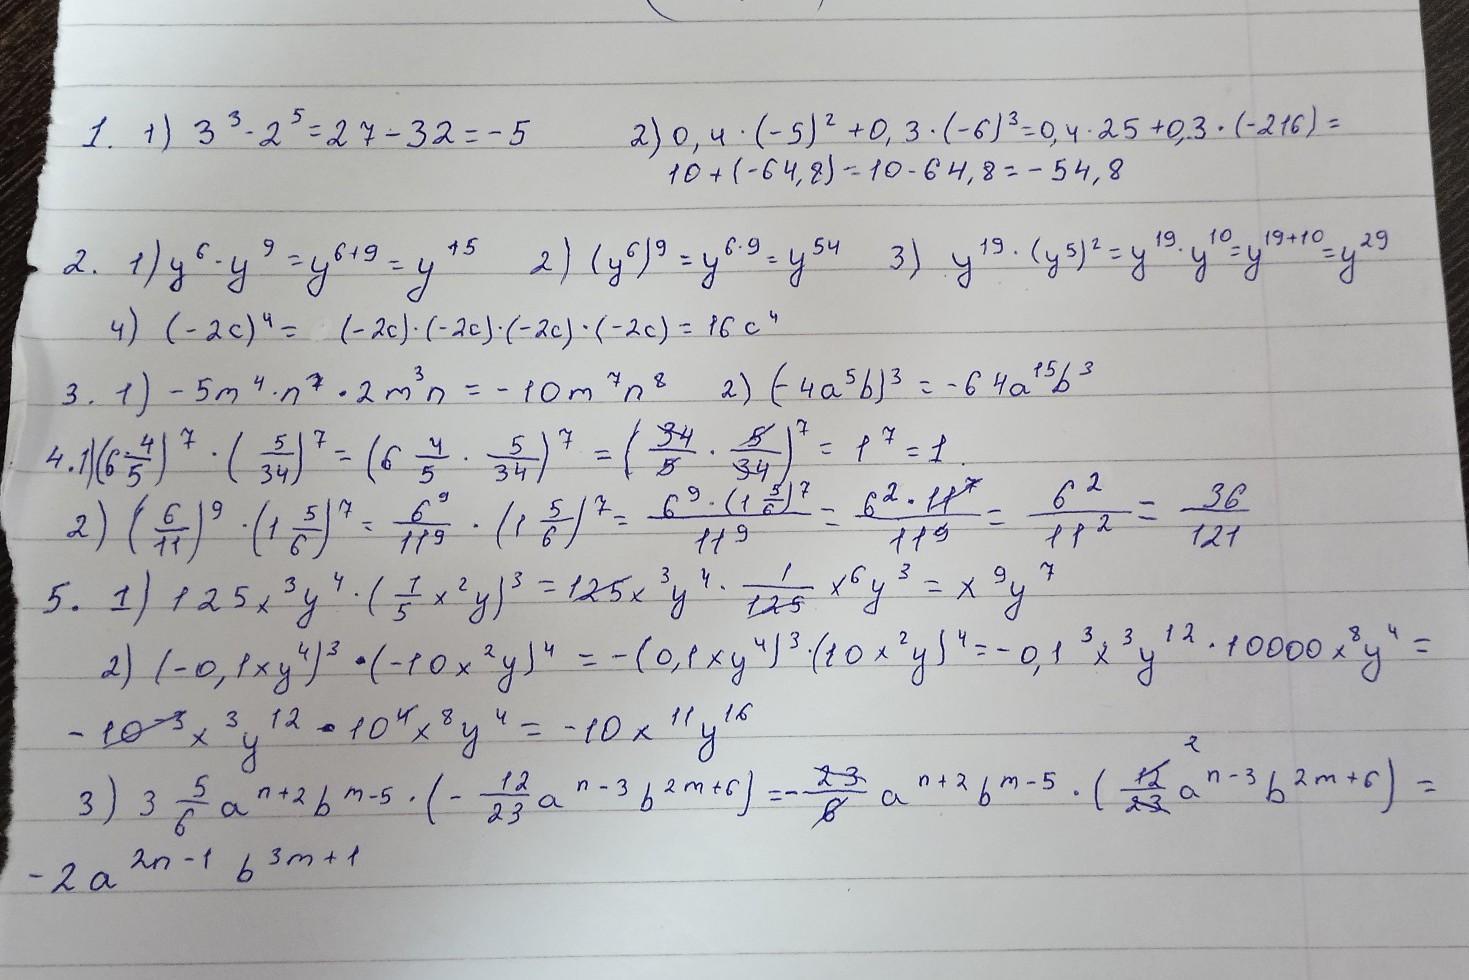 1. 1) 3³ - 2⁵ = 27 - 32 = -5 2) 0,4 · (-5)² + 0,3 · (-6)³ = 0,4 · 25 + 0,3 · (-216) =
10 + (-64,8) = 10 - 64,8 = -54,8
2. 1) y⁶ · y⁹ = y⁶⁺⁹ = y¹⁵ 2) (y⁶)⁹ = y⁶·⁹ = y⁵⁴ 3) y¹⁹ · (y⁵)² = y¹⁹ · y¹⁰ = y¹⁹⁺¹⁰ = y²⁹
4) (-2c)⁴ = (-2c) · (-2c) · (-2c) · (-2c) = 16c⁴
3. 1) -5m⁴ · n⁷ · 2m³n = -10m⁷n⁸ 2) (-4a⁵b)³ = -64a¹⁵b³
4. 1) (6 4/5)⁷ · (5/34)⁷ = (6 4/5 · 5/34)⁷ = (34/5 · 5/34)⁷ = 1⁷ = 1
2) (6/11)⁹ · (1 5/6)⁷ = 6⁹/11⁹ · (1 5/6)⁷ = 6⁹ · (1 5/6)⁷/11⁹ = 6² · 11⁷/11⁹ = 6²/11² = 36/121
5. 1) 125x³y⁴ · (1/5 x²y)³ = 125x³y⁴ · 1/125 x⁶y³ = x⁹y⁷
2) (-0,1xy⁴)³ · (-10x²y)⁴ = -(0,1xy⁴)³ · (10x²y)⁴ = -0,1³x³y¹² · 10000x⁸y⁴ =
-10⁻³x³y¹² · 10⁴x⁸y⁴ = -10x¹¹y¹⁶
3) 3 5/6 aⁿ⁺²bᵐ⁻⁵ · (-12/23 aⁿ⁻³b²ᵐ⁺⁶) = -23/6 aⁿ⁺²bᵐ⁻⁵ · (12/23 2 aⁿ⁻³b²ᵐ⁺⁶) =
-2a²ⁿ⁻¹ b³ᵐ⁺¹